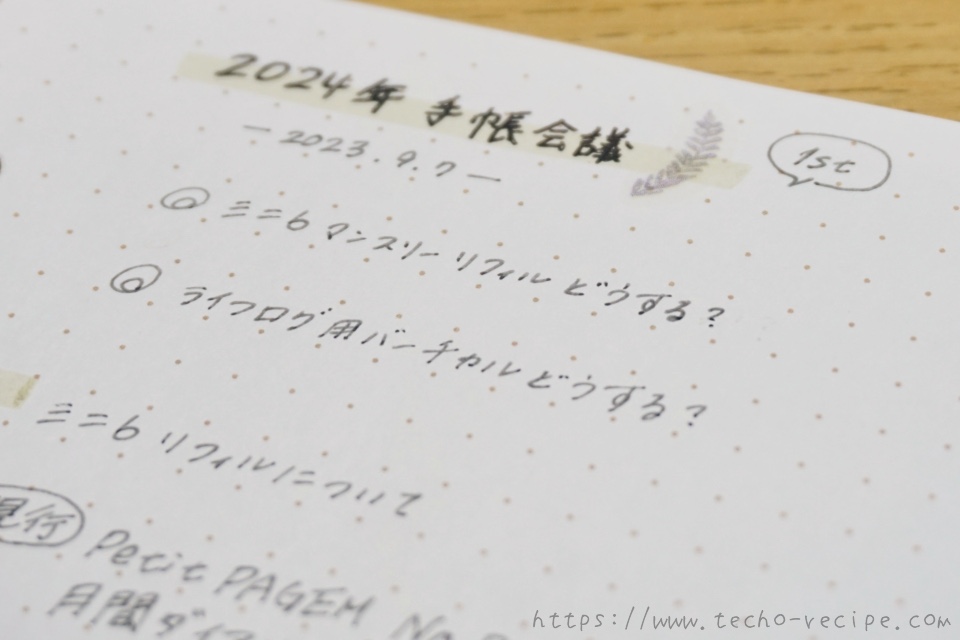 2024年 手帳会議
1st
— 2023.9.7 —
◎ ミニ6 マンスリー リフィル どうする?
◎ ライフログ用バーチカル どうする?
ミニ6 リフィルについて
現行 Petit PAGEM No.
月間ダイ
https://www.techo-recipe.com